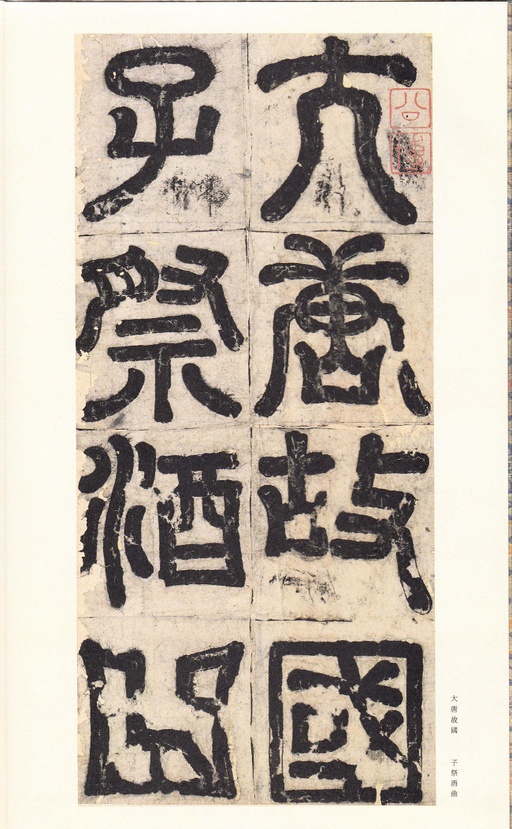 大唐故國
子祭酒曲
大唐故國　子祭酒曲